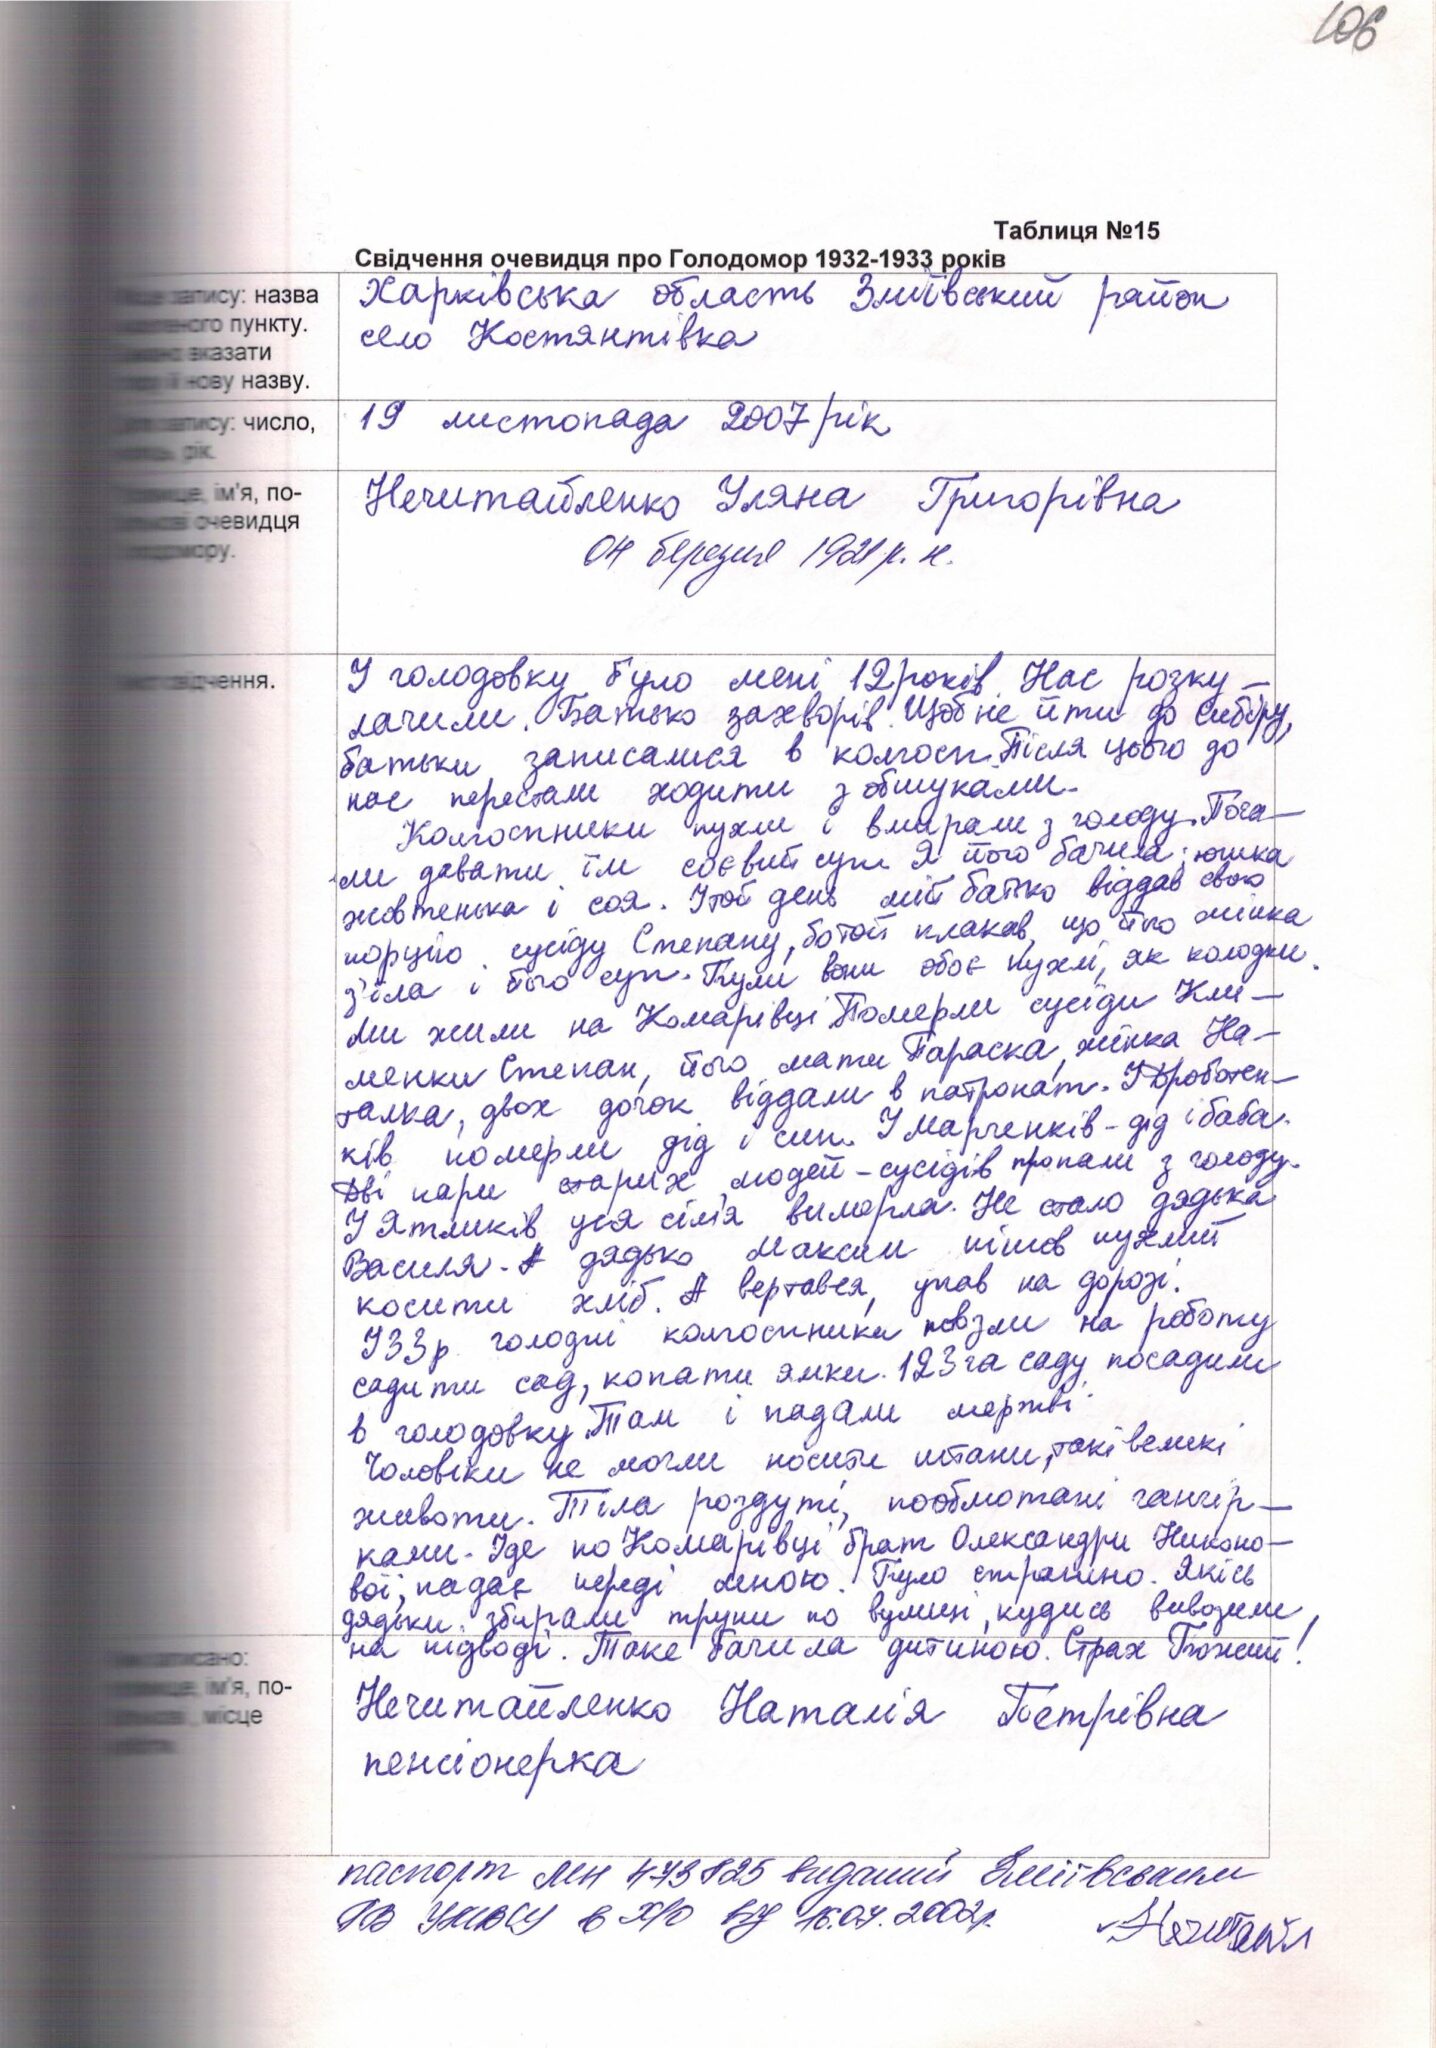 106
Таблиця №15
Свідчення очевидця про Голодомор 1932-1933 років
запису: назва
пункту.
вказати
нову назву.
Харківська область Зміївський район
село Костянтівка
запису: число,
рік.
19 листопада 2007 рік
ім'я, по-
очевидця
Нечитайленко Уляна Григорівна
04 березня 1921 р. н.
свідчення.
У голодовку було мені 12 років. Нас розку-
лачили. Батько захворів. Щоб не йти до Сибіру,
батьки записалися в колгосп. Після цього до
нас перестали ходити з обшуками.
Колгоспники пухли і вмирали з голоду. Поча-
ли давати їм соєвий суп. Я його бачила: юшка
жовтенька і соя. І той день мій батько віддав свою
порцію сусіду Степану, бо той плакав, що його жінка
з'їла і його суп. Були вони обоє пухлі, як колодки.
Ми жили на Комарівці. Померли сусіди Кли-
менки Степан, його мати Параска, жінка На-
талка, двох дочок віддали в патронат. У Дроботен-
ків померли дід і син. У Марченків - дід і баба.
Дві пари старих людей - сусідів пропали з голоду.
У Ятликів уся сім'я вимерла. Не стало дядька
Василя. А дядько Максим пішов пухлий
косити хліб. А вертався, упав на дорозі.
У 33 р. голодні колгоспники повзли на роботу
садити сад, копати ямки. 123 га саду посадили
в голодовку. Там і падали мертві.
Чоловіки не могли носити штани, такі великі
животи. Тіла роздуті, пообмотані ганчір-
ками. Іде по Комарівці брат Олександри Никоно-
вої, падає переді мною. Було страшно. Якісь
дядьки збирали трупи по вулиці, кудись вивозили
на підводі. Таке бачила дитиною. Страх Божий!
ім'я, по-
місце
Нечитайленко Наталія Петрівна
пенсіонерка
паспорт МН 473825 виданий Зміївським
РВ УМВСУ в Х/О від 16.07.2002р.
Нечитайл